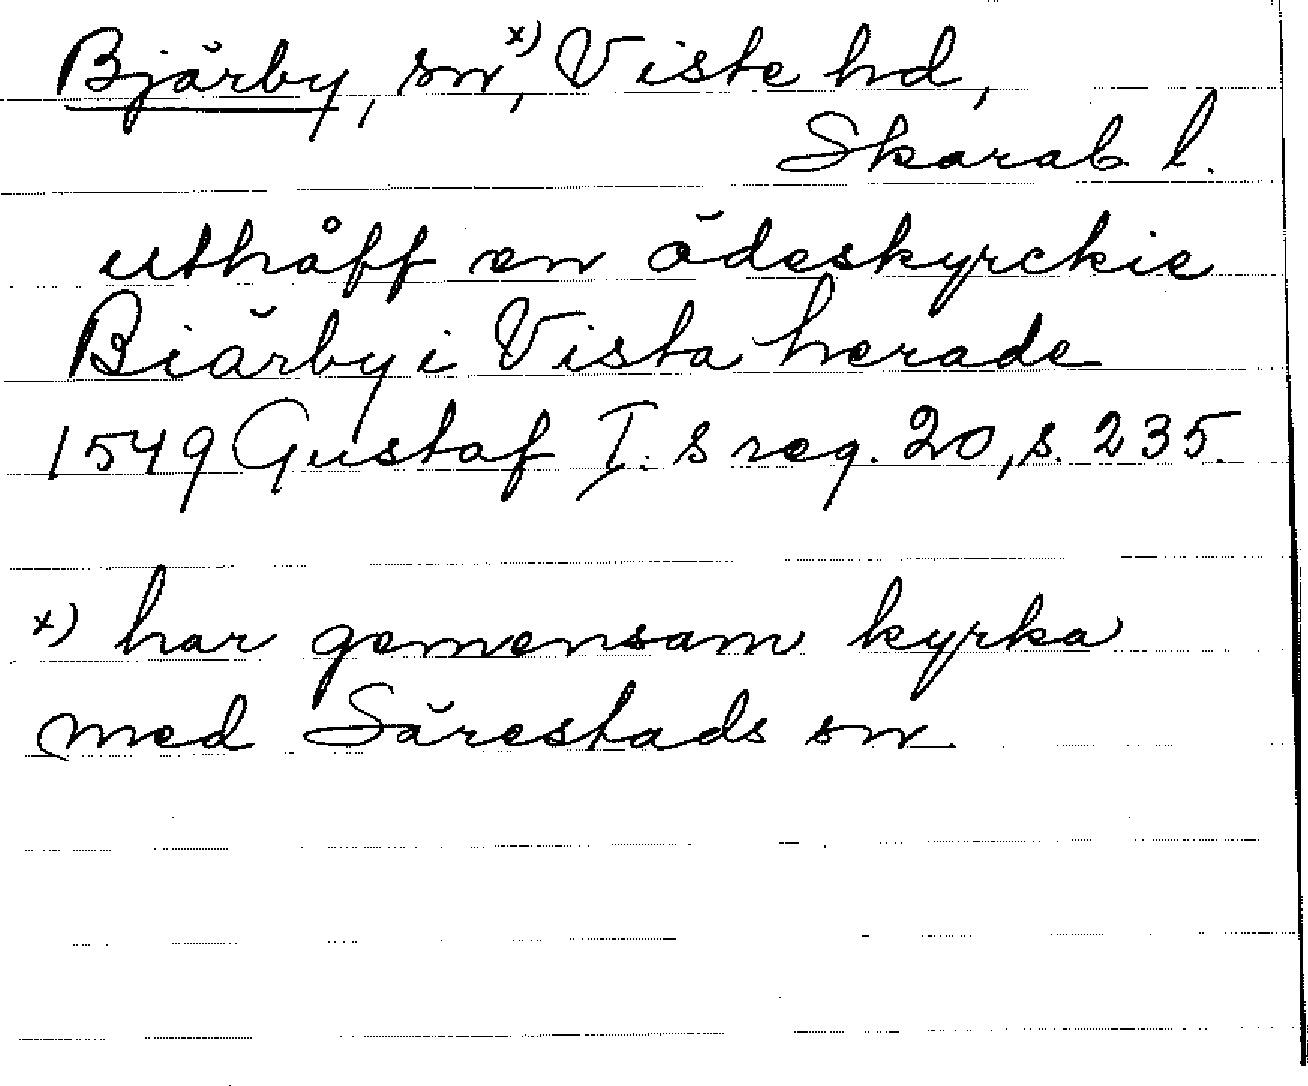 Bjärby, sn,x) Viste hd,
Skarab. l.
uthåff en ödeskyrckie
Biärby i Vista herade
1549 Gustaf I:s reg. 20, s. 235.
x) har gemensam kyrka
med Särestads sn